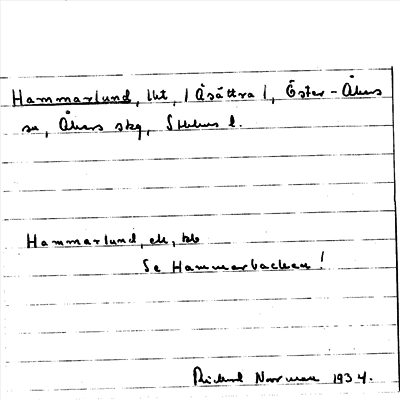 Hammarlund, lht, / Åsättra /, Öster-Åkers
sn, Åkers skg, Sthlms l.
Hammarlund, ek, bb
Se Hammarbacken!
Rickard Norrman 1934.